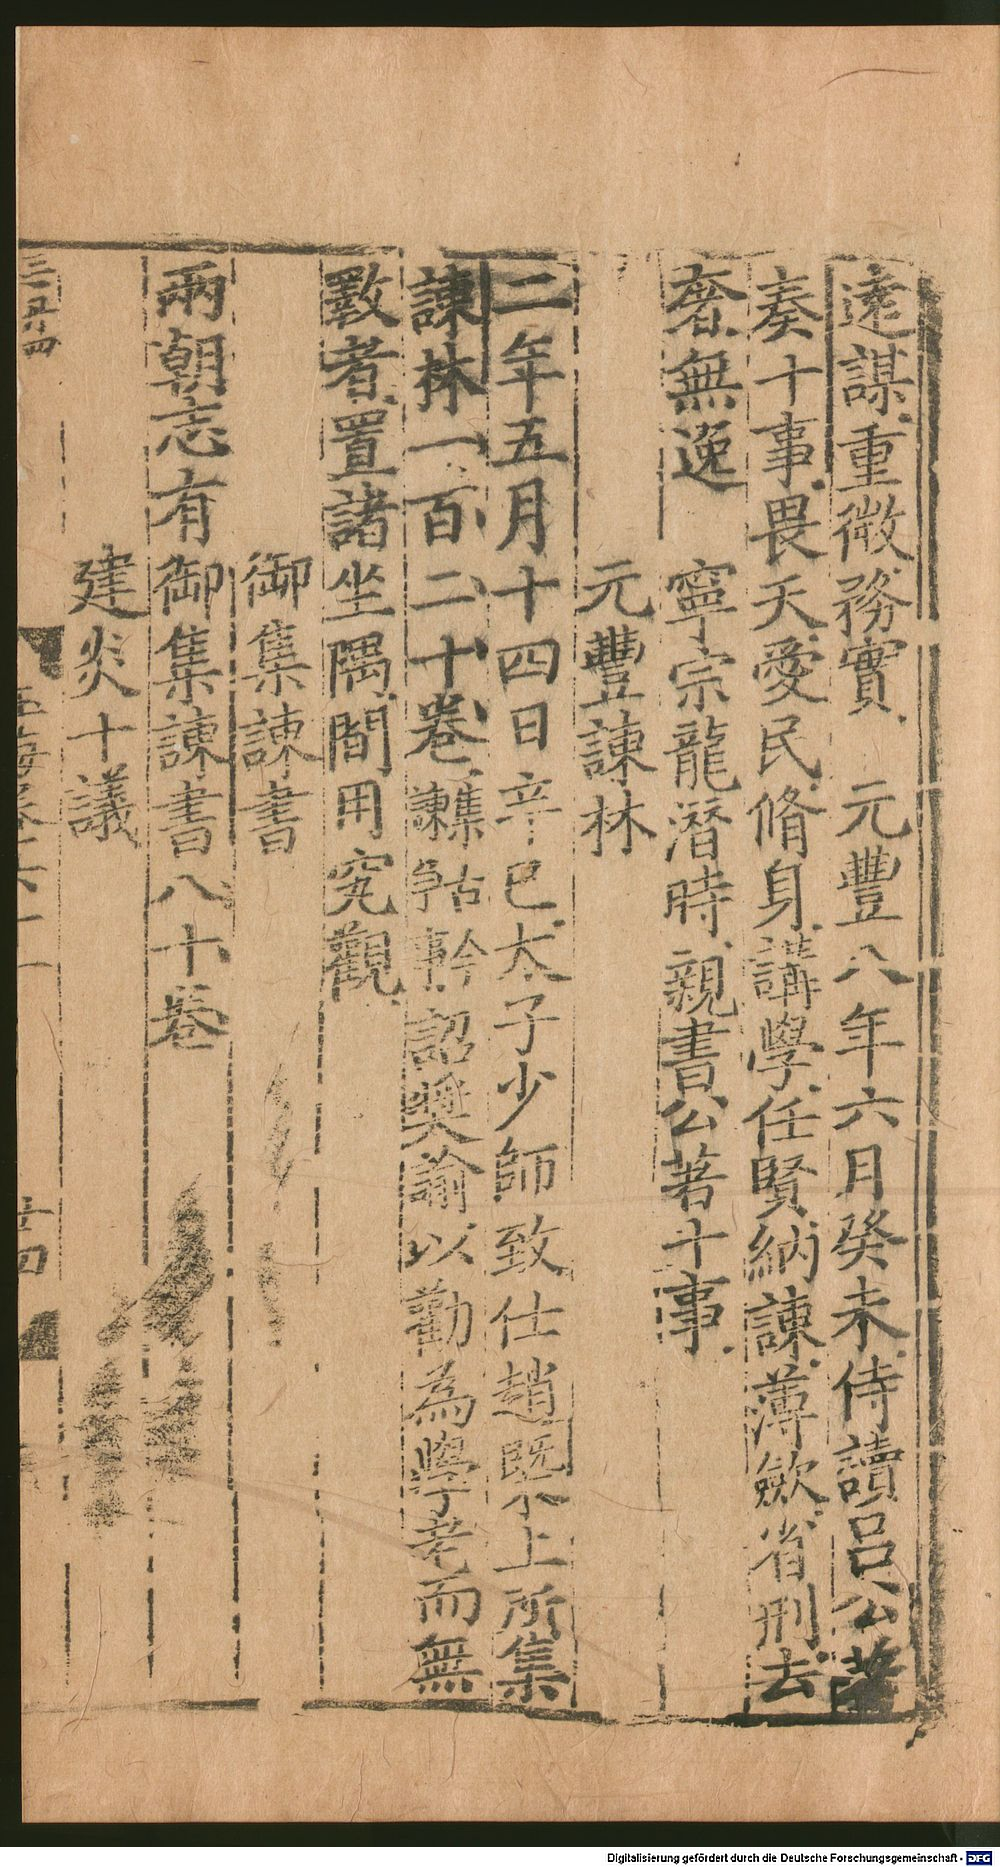 遠謀重微務實　元豐八年六月癸未侍讀呂公著
奏十事畏天愛民脩身講學任賢納諫薄歛省刑去
奢無逸　寧宗龍潛時親書公著十事
元豐諫林
二年五月十四日辛巳太子少師致仕趙旣上所集
諫林一百二十卷 諫爭事 集古今 詔奬諭以勸為學老而無
斁者置諸坐隅間用究觀
御集諫書
兩朝志有御集諫書八十卷
建炎十議
三五四
玉海卷六十一
Digitalisierung gefördert durch die Deutsche Forschungsgemeinschaft - DFG